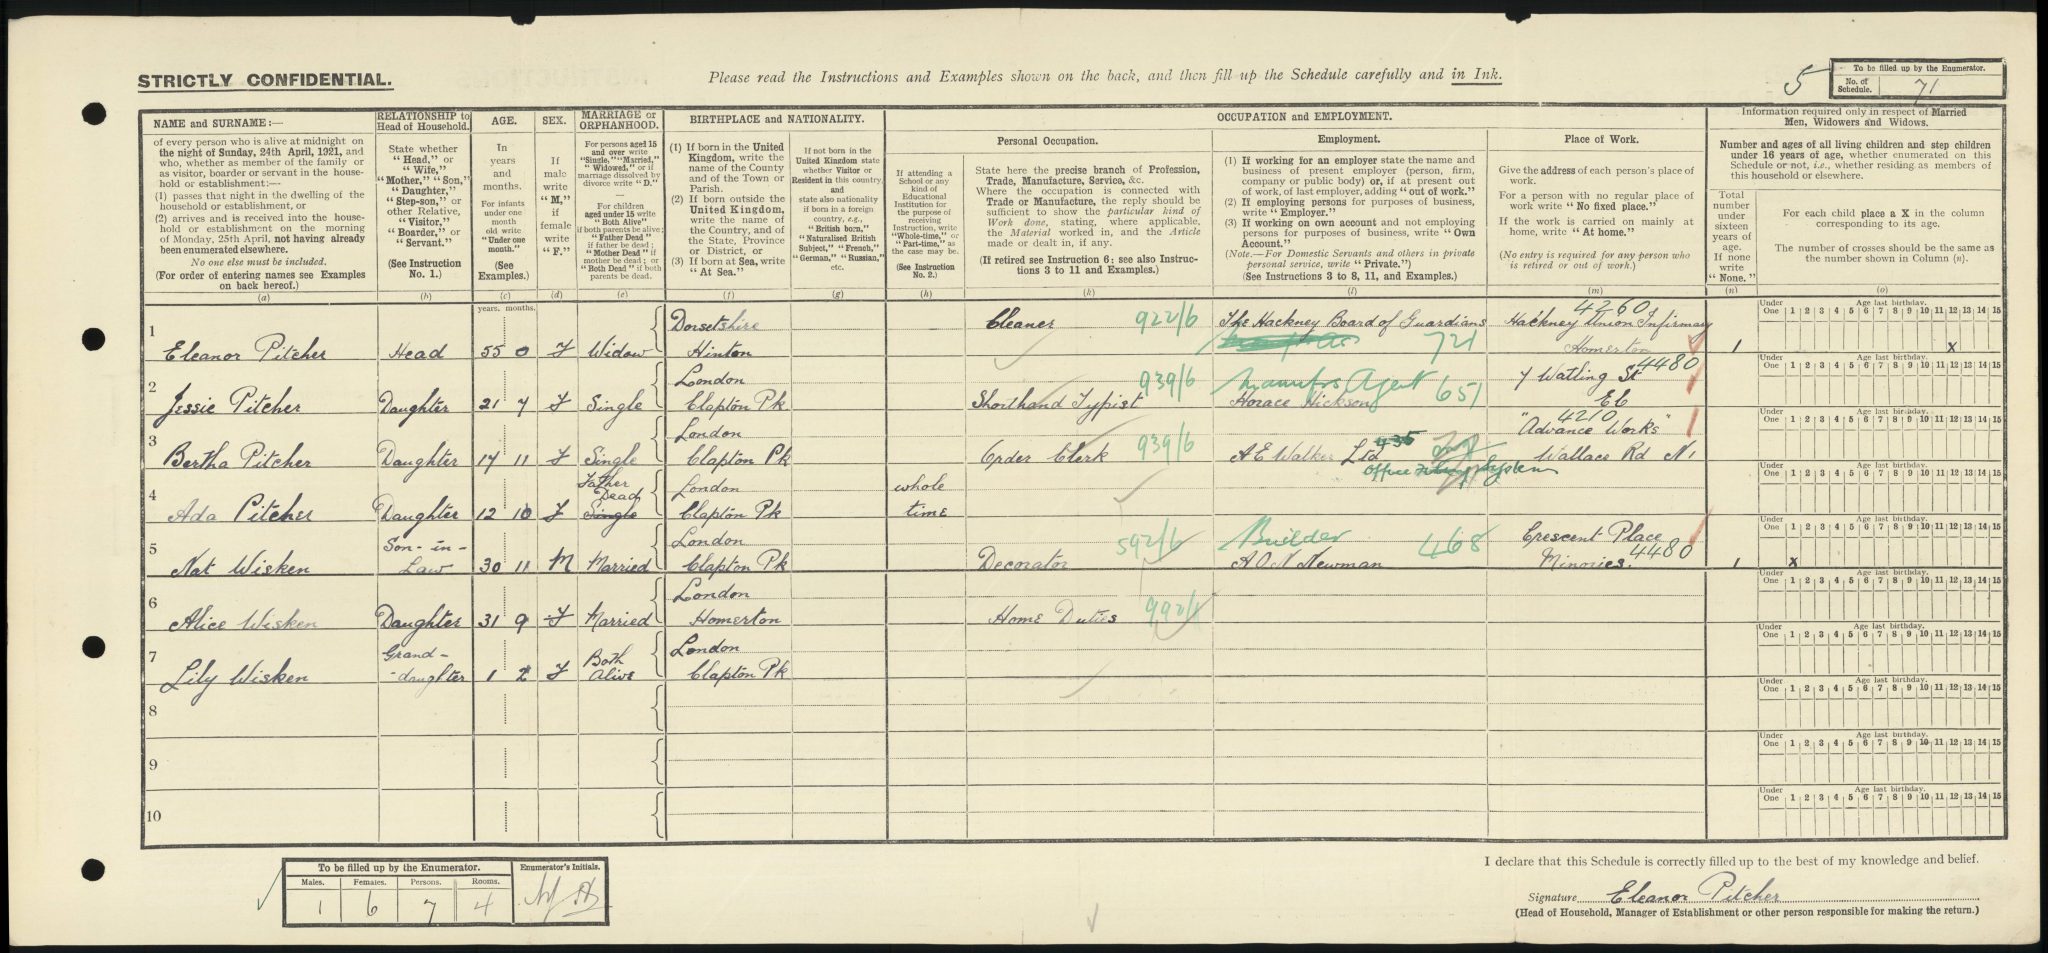 STRICTLY CONFIDENTIAL.
Please read the Instructions and Examples shown on the back, and then fill up the Schedule carefully and in Ink.
5
To be filled up by the Enumerator.
No. of Schedule. 71
NAME and SURNAME:—
of every person who is alive at midnight on
the night of Sunday, 24th April, 1921, and
who, whether as member of the family or
as visitor, boarder or servant in the house-
hold or establishment:—
(1) passes that night in the dwelling of the
household or establishment, or
(2) arrives and is received into the house-
hold or establishment on the morning
of Monday, 25th April, not having already
been enumerated elsewhere.
No one else must be included.
(For order of entering names see Examples
on back hereof.)
(a)
RELATIONSHIP to
Head of Household.
State whether
"Head," or
"Wife,"
"Mother," "Son,"
"Daughter,"
"Step-son," or
other Relative,
"Visitor,"
"Boarder," or
"Servant."
(See Instruction
No. 1.)
(b)
AGE.
In
years
and
months.
For infants
under one
month
old write
"Under one
month."
(See
Examples.)
(c)
SEX.
If
male
write
"M,"
if
female
write
"F."
(d)
MARRIAGE or
ORPHANHOOD.
For persons aged 15
and over write
"Single," "Married,"
"Widowed," or if
marriage dissolved by
divorce write "D."
For children
aged under 15 write
"Both Alive"
if both parents be alive;
"Father Dead"
if father be dead;
"Mother Dead" if
mother be dead; or
"Both Dead" if both
parents be dead.
(e)
BIRTHPLACE and NATIONALITY.
(1) If born in the United
Kingdom, write the
name of the County
and of the Town or
Parish.
(2) If born outside the
United Kingdom,
write the name of
the Country, and of
the State, Province
or District, or
(3) If born at Sea, write
"At Sea."
(f)
If not born in the
United Kingdom state
whether Visitor or
Resident in this country,
and
state also nationality
if born in a foreign
country, e.g.,
"British born,"
"Naturalised British
Subject," "French,"
"German," "Russian,"
etc.
(g)
OCCUPATION AND EMPLOYMENT.
If attending a
School or any
kind of
Educational
Institution for
the purpose of
receiving
Instruction, write
"Whole-time," or
"Part-time," as
the case may be.
(See Instruction
No. 2.)
(h)
Personal Occupation.
State here the precise branch of Profession,
Trade, Manufacture, Service, &c.
Where the occupation is connected with
Trade or Manufacture, the reply should be
sufficient to show the particular kind of
Work done, stating, where applicable,
the Material worked in, and the Article
made or dealt in, if any.
(If retired see Instruction 6; see also Instruc-
tions 3 to 11 and Examples.)
(k)
Employment.
(1) If working for an employer state the name and
business of present employer (person, firm,
company or public body) or, if at present out
of work, of last employer, adding "out of work."
(2) If employing persons for purposes of business,
write "Employer."
(3) If working on own account and not employing
persons for purposes of business, write "Own
Account."
(Note.—For Domestic Servants and others in private
personal service, write "Private.")
(See Instructions 3 to 8, 11, and Examples.)
(l)
Place of Work.
Give the address of each person's place of
work.
For a person with no regular place of
work write "No fixed place."
If the work is carried on mainly at
home, write "At home."
(No entry is required for any person who
is retired or out of work.)
(m)
Information required only in respect of Married
Men, Widowers and Widows.
Number and ages of all living children and step children
under 16 years of age, whether enumerated on this
Schedule or not, i.e., whether residing as members of
this household or elsewhere.
Total
number
under
sixteen
years of
age.
If none
write
"None."
(n)
For each child place a X in the column
corresponding to its age.
The number of crosses should be the same as
the number shown in Column (n).
(o)
years. months.
1 Eleanor Pitcher Head 55 0 F Widow Dorsetshire Hinton Cleaner 922/6 The Hackney Board of Guardians 721 4260 Hackney Union Infirmary Homerton 1 x
Under One Age last birthday. 1 2 3 4 5 6 7 8 9 10 11 12 13 14 15
2 Jessie Pitcher Daughter 21 7 F Single London Clapton Pk Shorthand Typist 939/6 Manufrs Agent 651 Horace Hickson 7 Watling St 4480 EC
Under One Age last birthday. 1 2 3 4 5 6 7 8 9 10 11 12 13 14 15
3 Bertha Pitcher Daughter 17 11 F Single London Clapton Pk Order Clerk 939/6 A E Walker Ltd 435 Office Filing System 4210 "Advance Works" Wallace Rd N1
Under One Age last birthday. 1 2 3 4 5 6 7 8 9 10 11 12 13 14 15
4 Ada Pitcher Daughter 12 10 F Father Dead Single London Clapton Pk whole time
Under One Age last birthday. 1 2 3 4 5 6 7 8 9 10 11 12 13 14 15
5 Nat Wisken Son-in-Law 30 11 M Married London Clapton Pk Decorator 592/6 Builder 468 A O N Newman Crescent Place Minories. 4480 1 x
Under One Age last birthday. 1 2 3 4 5 6 7 8 9 10 11 12 13 14 15
6 Alice Wisken Daughter 31 9 F Married London Homerton Home Duties
Under One Age last birthday. 1 2 3 4 5 6 7 8 9 10 11 12 13 14 15
7 Lily Wisken Grand-daughter 1 2 F Both Alive London Clapton Pk
Under One Age last birthday. 1 2 3 4 5 6 7 8 9 10 11 12 13 14 15
8
Under One Age last birthday. 1 2 3 4 5 6 7 8 9 10 11 12 13 14 15
9
Under One Age last birthday. 1 2 3 4 5 6 7 8 9 10 11 12 13 14 15
10
Under One Age last birthday. 1 2 3 4 5 6 7 8 9 10 11 12 13 14 15
To be filled up by the Enumerator.
Males. Females. Persons. Rooms.
1 6 7 4
Enumerator's Initials.
I declare that this Schedule is correctly filled up to the best of my knowledge and belief.
Signature Eleanor Pitcher
(Head of Household, Manager of Establishment or other person responsible for making the return.)